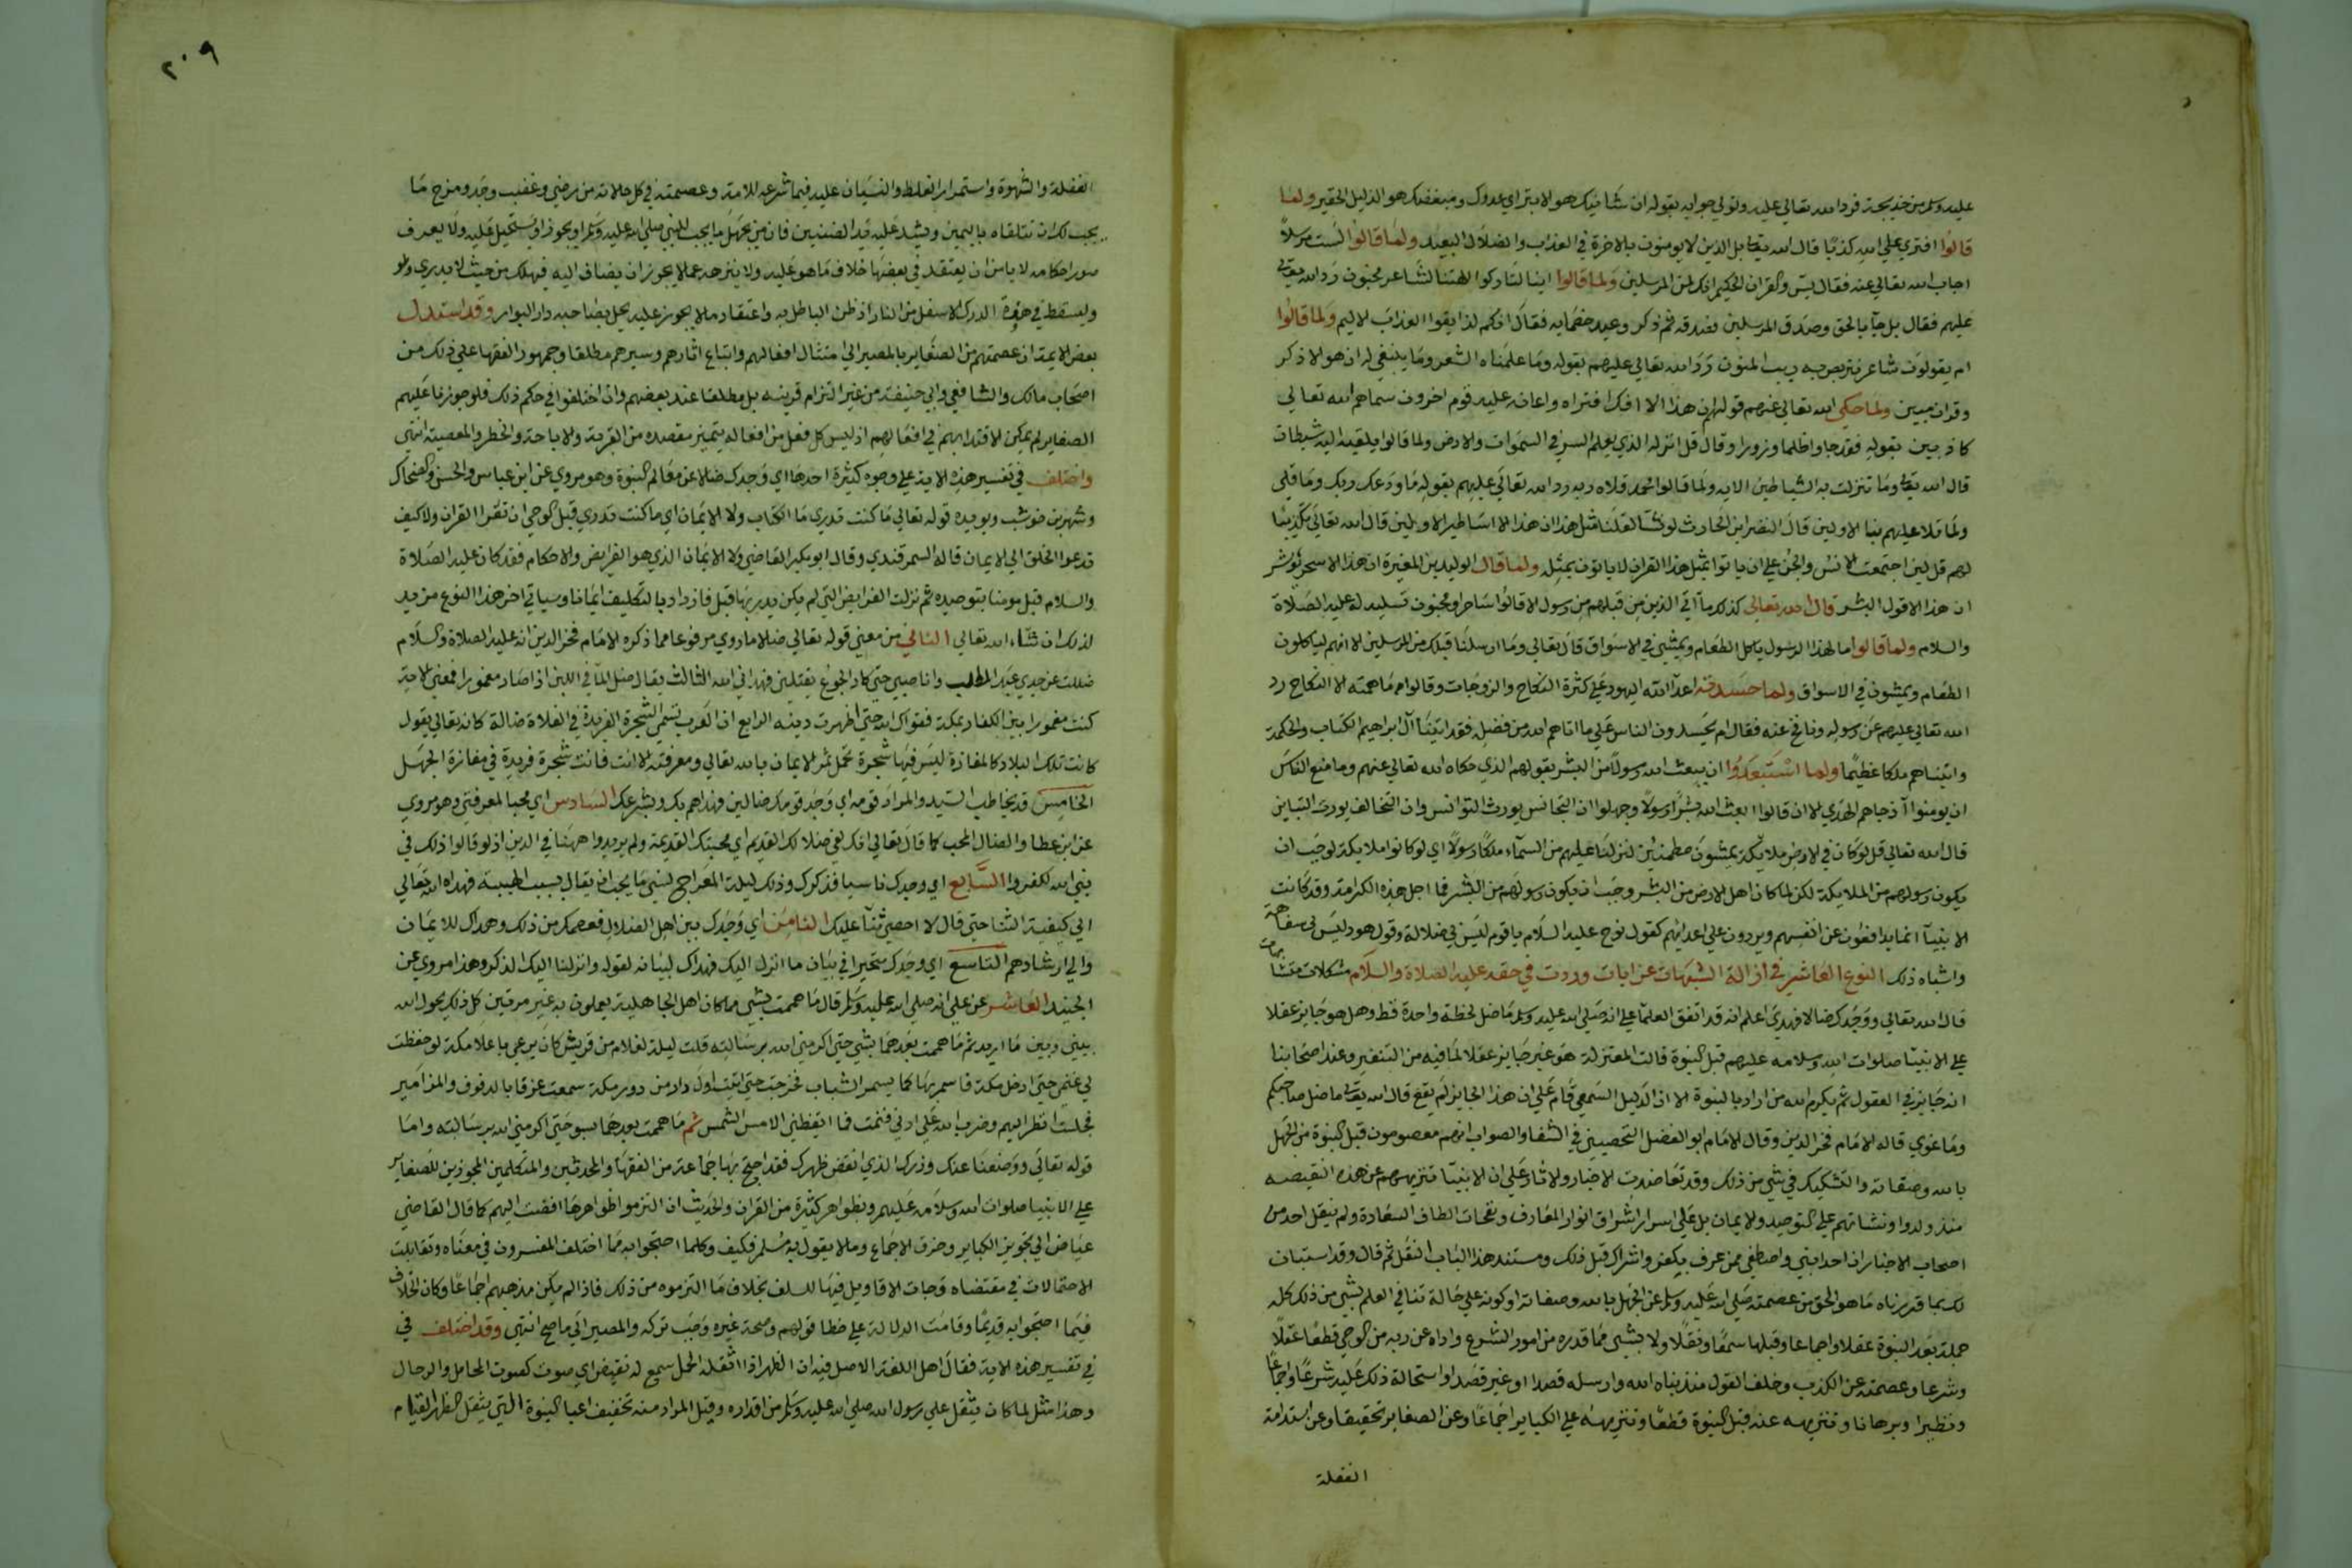 عليه وسلم من خديجة فرد الله تعالي عليه وتولي جوابه بقوله ان شانيك هو الابتر اي عدوك ومبغضك هو الذليل الحقير ولما
قالوا افتري علي الله كذبا قال الله تعالى بل الذين لا يومنون بالاخرة في العذاب والضلال البعيد ولما قالوا لست مرسلا
اجاب الله تعالي عنه فقال يس والقران الحكيم انك لمن المرسلين ولما قالوا اينا لتاركوا الهتنا لشاعر مجنون رد الله تعالى
عليهم فقال بل جآ بالحق وصدق المرسلين فصدقه ثم ذكر وعيد خصمايه فقال انكم لذايقوا العذاب الاليم ولما قالوا
ام يقولون شاعر نتربص به ريب المنون رد الله تعالي عليهم بقوله وما علمناه الشعر وما ينبغي له ان هو الا ذكر
وقران مبين ولما حكي الله تعالي عنهم قولهم ان هذا الا افك افتراه واعانه عليه قوم اخرون سماهم الله تعالي
كاذبين بقوله فقد جاوا ظلما وزورا وقال قل انزله الذي يعلم السر في السموات والارض ولما قالوا يلقيه اليه شيطان
قال الله تعالى وما تنزلت به الشياطين الايه ولما قالوا محمد قلاه ربه رد الله تعالي عليهم بقوله ما ودعك ربك وما قلي
ولما تلا عليهم نبا الاولين قال النضر ابن الحارث لو نشآ لقلنا مثل هذا ان هذا الا اساطير الاولين قال الله تعالي تكذيبا
لهم قل لين اجتمعت الانس والجن علي ان ياتوا بمثل هذا القران لا ياتون بمثله ولما قال الوليد بن المغيرة ان هذا الا سحر يوثر
ان هذا الا قول البشر قال الله تعالي كذلك مآ اتي الذين من قبلهم من رسول الا قالوا ساحر او مجنون تسلية له عليه الصلاة
والسلام ولما قالوا ما لهذا الرسول ياكل الطعام ويمشي في الاسواق قال تعالي وما ارسلنا قبلك من المرسلين الا انهم لياكلون
الطعام ويمشون في الاسواق ولما حسدته اعدآ الله اليهود علي كثرة النكاح والزوجات وقالوا ما همته الا النكاح رد
الله تعالي عليهم عن رسوله ونافح عنه فقال ام يحسدون الناس علي ما اتاهم الله من فضله فقد اتينا آل ابراهيم الكتاب والحكمة
واتيناهم ملكا عظيما ولما استبعدوا ان يبعث الله رسولا من البشر بقولهم الذي حكاه الله تعالي عنهم وما منع الناس
ان يومنوا آ ذ جاهم الهدي الا ان قالوا ابعث الله بشرا رسولا وجهلوا ان التجانس يورث التوانس وان التخالف يورث التباين
قال الله تعالي قل لو كان في الارض ملايكة يمشون مطمئنين لنزلنا عليهم من السمآء ملكا رسولا اي لو كانوا ملايكة لوجب ان
يكون رسولهم من الملايكة لكن لما كان اهل الارض من البشر وجب ان يكون رسولهم من البشر فما اجل هذه الكرامة وقد كانت
الانبيآ انما يدافعون عن انفسهم ويردون علي اعدايهم كقول نوح عليه السلام يا قوم ليس بي ضلالة وقول هود ليس بي سفاهة
واشباه ذلك النوع العاشر في ازالة الشبهات عن ايات وردت في حقه عليه الصلاة والسلام مشكلات متشابهات
قال الله تعالي ووجدك ضالا فهدي اعلم انه قد اتفق العلمآ علي انه صلي الله عليه وسلم ما ضل لحظة واحدة قط وهل هو جايز عقلا
علي الانبيا صلوات الله وسلامه عليهم قبل النبوة قالت المعتزلة هو غير جايز عقلا لما فيه من التنفير وعند اصحابنا
انه جايز في العقول ثم يكرم الله من اراد بالنبوة الا ان الدليل السمعي قام علي ان هذا الجايز لم يقع قال الله تعالى ما ضل صاحبكم
وما غوي قاله الامام فخر الدين وقال الامام ابو الفضل اليحصبي في الشفا والصواب انهم معصومون قبل النبوة من الجهل
بالله وصفاته والتشكيك في شي من ذلك وقد تعاضدت الاخبار والاثار علي ان الانبيآ تنزيههم عن هذه النقيصه
منذ ولدوا ونشاتهم علي التوحيد والايمان بل علي اسرار اشراق انوار المعارف ونفحات الطاف السعادة ولم ينقل احد من
اصحاب الاخبار ان احدا نبئ واصطفي ممن عرف بكفر واشراك قبل ذلك ومستند هذا الباب النقل ثم قال وقد استبان
لك بما قررناه ما هو الحق من عصمته صلي الله عليه وسلم عن الجهل بالله وصفاته او كونه علي حالة تنافي العلم بشي من ذلك كله
جملة بعد النبوة عقلا واجماعا وقبلها سمعا ونقلا ولا بشي مما قدره من امور الشرع واداه عن ربه من الوحي قطعا عقلا
وشرعا وعصمته عن الكذب وخلف القول منذ نباه الله وارسله قصدا او غير قصد واستحالة ذلك عليه شرعا واجماعا
ونظرا وبرهانا وتنزيهه عنه قبل النبوة قطعا وتنزيهه علي الكباير اجماعا وعن الصغاير تحقيقا وعن استدامة
الغفلة
٢٠٩
الغفلة والشهوة واستمرار الغلط والنسيان عليه فيما شرعه للامة وعصمته في كل حالاته من رضي وغضب وجد ومزح ما
يجب لك ان تتلقاه باليمين وتشد عليه يد الضنين فان من يجهل ما يجب للنبي صلي الله عليه وسلم او يجوز او يستحيل عليه ولا يعرف
صور احكامه لا يامن ان يعتقد في بعضها خلاف ما هو عليه ولا ينزهه عما لا يجوز ان يضاف اليه فيهلك من حيث لا يدري
ويسقط في هوة الدرك الاسفل من النار اذ ظن الباطل به واعتقاد ما لا يجوز عليه يحل بصاحبه دار البوار وقد استدل
بعض الايمة ان عصمتهم من الصغاير بالمصير الي امتثال افعالهم واتباع اثارهم وسيرهم مطلقا وجمهور الفقها علي ذلك من
اصحاب مالك والشافعي وابي حنيفة من غير التزام قرينه بل مطلقا عند بعضهم وان اختلفوا في حكم ذلك فلو جوزنا عليهم
الصغاير لم يمكن الاقتدا بهم في افعالهم اذ ليس كل فعل من افعاله يتميز مقصده من القربة والاباحة والحظر والمعصية انتهي
واختلف في تفسير هذه الاية علي وجوه كثيرة احدها اي وجدك ضالا عن معالم النبوة وهو مروي عن ابن عباس والحسن والضحاك
وشهر بن حوشب ويويده قوله تعالي ما كنت تدري ما الكتاب ولا الايمان اي ما كنت تدري قبل الوحي ان تقرا القران ولا كيف
تدعوا الخلق الي الايمان قاله السمرقندي وقال ابو بكر القاضي ولا الايمان الذي هو الفرايض والاحكام فقد كان عليه الصلاة
والسلام قبل مومنا بتوحيده ثم نزلت الفرايض التي لم يكن يدريها قبل فازداد بالتكليف ايمانا وسياتي اخر هذا النوع مزيد
لذلك ان شآء الله تعالي الثاني من معني قوله تعالي ضالا ما روي مرفوعا مما ذكره الامام فخر الدين انه عليه الصلاة والسلام
ضللت عن جدي عبد المطلب وانا صبي حتي كاد الجوع يقتلني فهداني الله الثالث يقال ضل المآ في اللبن اذا صار مغمورا فمعني الاية
كنت مغمورا بين الكفار بمكة فقواك الله حتي اظهرت دينه الرابع ان العرب تسمي الشجرة الفريدة في الفلاة ضالة كانه تعالي يقول
كانت تلك البلاد كالمفازة ليس فيها شجرة تحمل ثمر الايمان بالله تعالي ومعرفته الا انت فانت شجرة فريدة في مفازة الجهل
الخامس قد يخاطب السيد والمراد قومه اي وجد قومك ضالين فهداهم بك وبشرعك السادس اي محبا لمعرفتي وهو مروي
عن ابن عطا والضال المحب كما قال تعالي انك لفي ضلالك القديم اي محبتك القديمة ولم يريدوا ههنا في الدين اذ لو قالوا ذلك في
نبي الله لكفروا السابع اي وجدك ناسيا فذكرك وذلك ليلة المعراج نسي ما يجب ان يقال بسبب الهيبة فهداه الله تعالي
الي كيفية الثنا حتي قال لا احصي ثنآ عليك الثامن اي وجدك بين اهل الضلال فعصمك من ذلك وهداك للايمان
والي ارشادهم التاسع اي وجدك متحيرا في بيان ما انزل اليك فهداك لبيانه لقوله وانزلنا اليك الذكر وهذا مروي عن
الجنيد العاشر عن علي انه صلي الله عليه وسلم قال ما هممت بشي مما كان اهل الجاهلية يعملون به غير مرتين كل ذلك يحول الله
بيني وبين ما اريد ثم ما هممت بعدهما بشي حتي اكرمني الله برسالته قلت ليلة لغلام من قريش كان يرعي باعلا مكة لو حفظت
لي غنمي حتي ادخل مكة فاسمر بها كما يسمر الشباب فخرجت حتي اتيت اول دار من دور مكة سمعت عزفا بالدفوف والمزامير
فجلست انظر اليهم وضرب الله علي اذني فنمت فما ايقظني الا مس الشمس ثم ما هممت بعدهما بسوء حتي اكرمني الله برسالته واما
قوله تعالي ووضعنا عنك وزرك الذي انقض ظهرك فقد احتج بها جماعة من الفقها والمحدثين والمتكلمين المجوزين للصغاير
علي الانبيا صلوات الله وسلامه عليهم وبظواهر كثيرة من القران والحديث ان التزموا ظواهرها افضت اليهم كما قال القاضي
عياض الي تجويز الكباير وخرق الاجماع وما لا يقول به مسلم فكيف وكلما احتجوا به مما اختلف المفسرون في معناه وتقابلت
الاحتمالات في مقتضاه وجات الاقاويل فيها للسلف بخلاف ما التزموه من ذلك فاذا لم يكن مذهبهم اجماعا وكان الخلاف
فيما احتجوا به قديما وقامت الدلالة علي خطا قولهم وصحة غيره وجب تركه والمصير الي ما صح انتهي وقد اختلف في
في تفسير هذه الاية فقال اهل اللغة الاصل فيه ان الظهر اذا اثقله الحمل سمع له نقيض اي صوت كصوت المحامل والرحال
وهذا مثل لما كان يثقل علي رسول الله صلي الله عليه وسلم من اقداره وقيل المراد منه تخفيف اعبا النبوة التي يثقل الظهر القيام